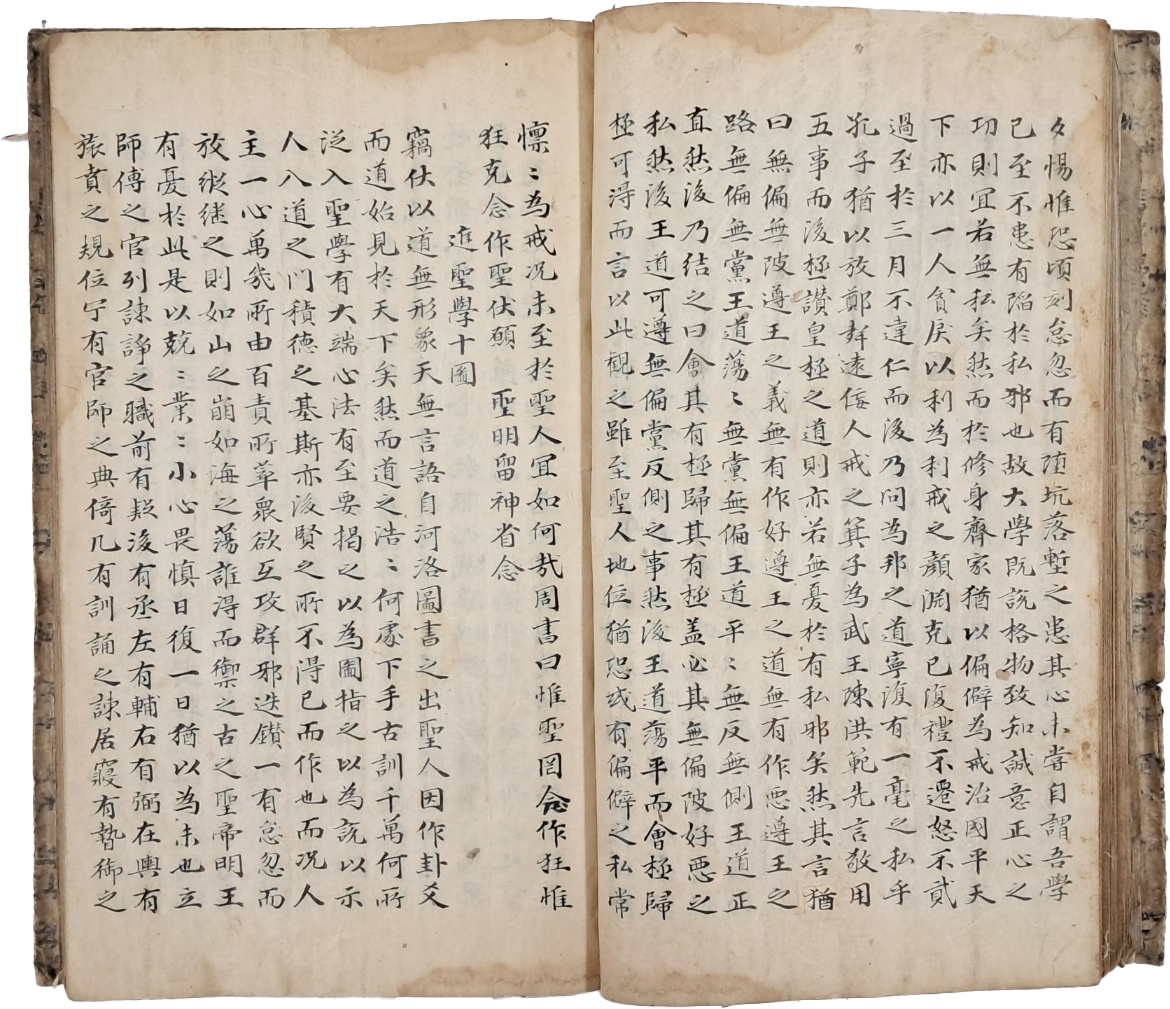 夕惕惟恐頃刻怠忽而有墮坑落塹之患其心未嘗自謂吾學
已至不患有陷於私邪也故大學既說格物致知誠意正心之
功則冝若無私矣然而於修身齊家猶以偏僻為戒治國平天
下亦以一人貪戾以利為利戒之顔淵克已復禮不遷怒不貳
過至於三月不違仁而後乃问為邦之道寧復有一毫之私乎
孔子猶以放鄭聲遠佞人戒之箕子為武王陳洪範先言敬用
五事而後極讃皇極之道則亦若無憂於有私邪矣然其言猶
曰無偏無陂遵王之義無有作好遵王之道無有作悪遵王之
路無偏無黨王道蕩〻無黨無偏王道平〻無反無側王道正
直然後乃结之曰會其有極歸其有極盖必其無偏陂好悪之
私然後王道可遵無偏黨反側之事然後王道蕩平而會極歸
極可淂而言以此觀之雖至聖人地位猶恐或有偏僻之私常
懍〻為戒况未至於聖人冝如何㢤周書曰惟聖罔念作狂惟
狂克念作聖伏願聖明留神省念
進聖學十圖
竊伏以道無形象天無言語自河洛圖書之出聖人因作卦爻
而道始見於天下矣然而道之浩〻何處下手古訓千萬何所
泛入聖學有大端心法有至要揭之以為圖指之以為說以示
人入道之门積德之基斯亦後賢之所不淂已而作也而况人
主一心萬幾所由百責所萃衆欲互攻群邪迭鑚一有怠忽而
放縱继之則如山之崩如海之蕩誰淂而禦之古之聖帝明王
有憂於此是以兢〻業〻小心畏慎日復一日猶以為未也立
師傅之官列諌諍之職前有疑後有丞左有輔右有弼在輿有
旅賁之規位宁有官師之典倚几有訓誦之諌居寢有暬御之